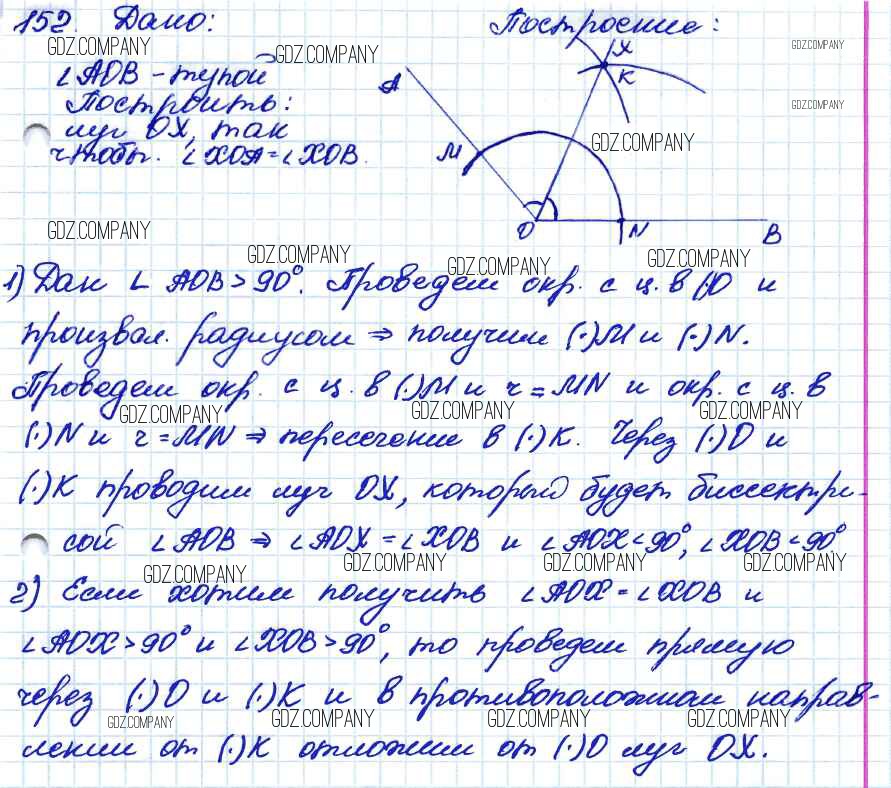 152. Дано:
Построение:
GDZ.COMPANY
GDZ.COMPANY
GDZ.COMPANY
∠AOB - тупой
Построить:
GDZ.COMPANY
луч OX, так
чтобы. ∠XOA = ∠XOB.
GDZ.COMPANY
X
K
A
M
O
N
B
GDZ.COMPANY
GDZ.COMPANY
GDZ.COMPANY
GDZ.COMPANY
1) Дан ∠ AOB > 90°. Проведем окр. с ц. в (·)O и
произвал. радиусом ⇒ получим (·)M и (·)N.
Проведем окр. с ц. в (·)M и r = MN и окр. с ц. в
GDZ.COMPANY
GDZ.COMPANY
GDZ.COMPANY
(·)N и r = MN ⇒ пересечение в (·)K. Через (·)O и
(·)K проводим луч OX, который будет биссектри-
сой ∠AOB ⇒ ∠AOX = ∠XOB и ∠AOX < 90°, ∠XOB < 90°
GDZ.COMPANY
GDZ.COMPANY
GDZ.COMPANY
GDZ.COMPANY
2) Если хотим получить ∠AOX = ∠XOB и
∠AOX > 90° и ∠XOB > 90°, то проведем прямую
через (·)O и (·)K и в противоположном направ-
GDZ.COMPANY
GDZ.COMPANY
GDZ.COMPANY
GDZ.COMPANY
лении от (·)K отложим от (·)O луч OX.